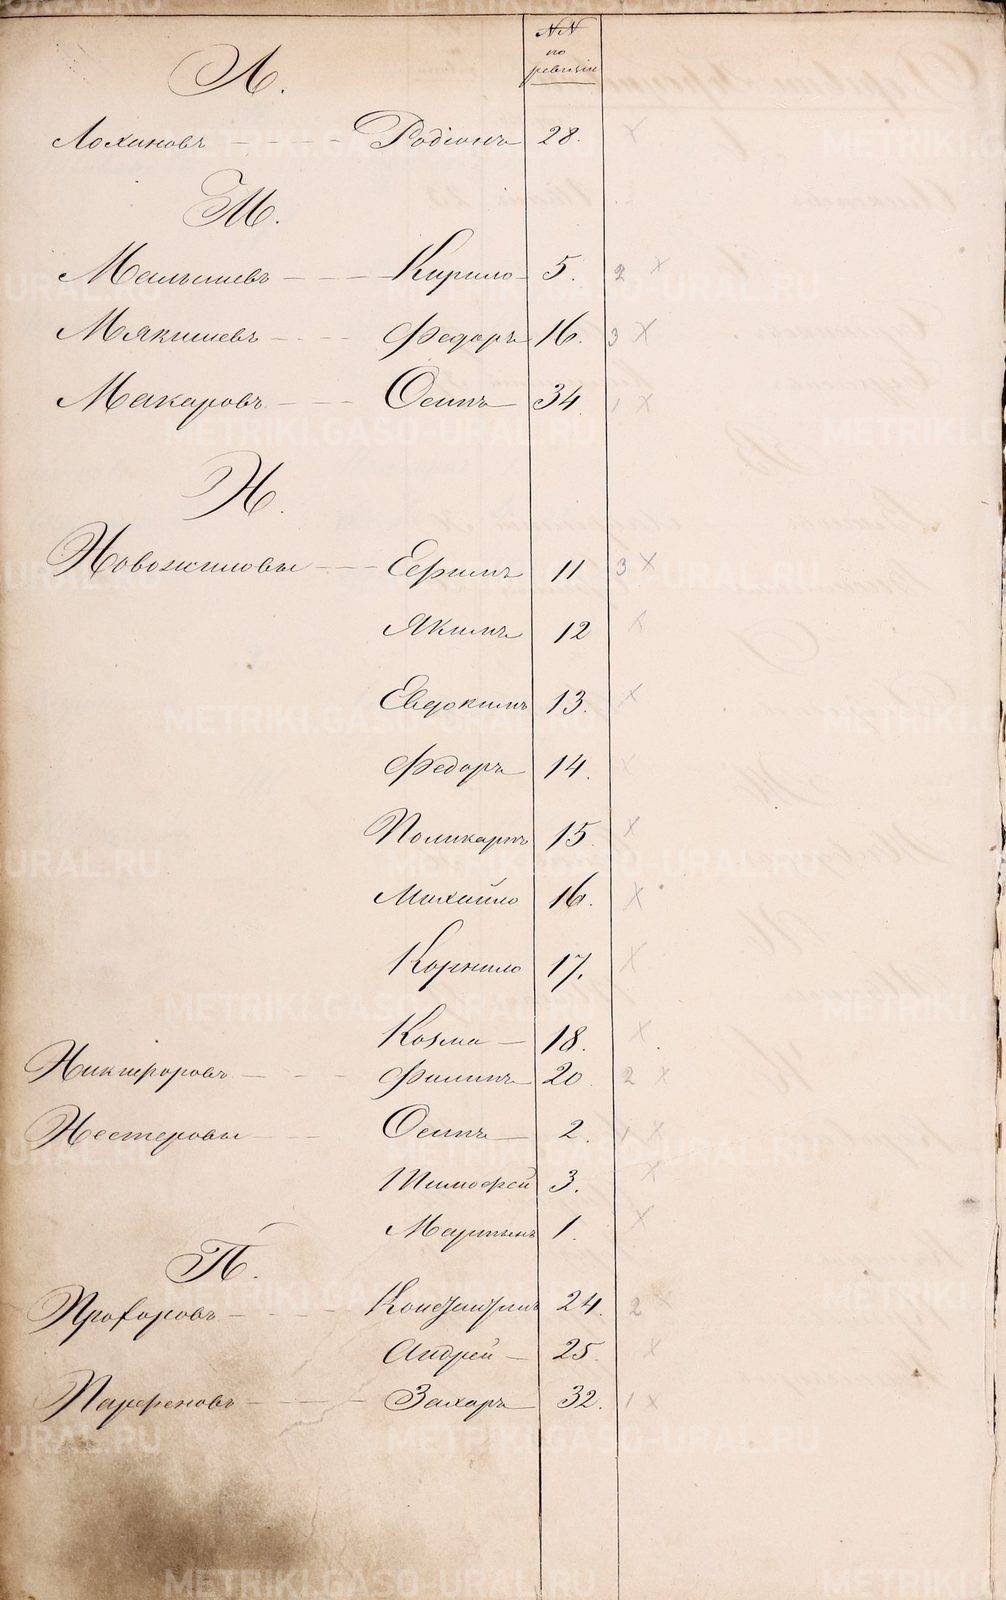 №№
по
ревизiи
Л.
Лохановъ Родiонъ 28.
М.
Малышевъ Кирило 5. 2 ×
Мякишевъ Федоръ 16. 3 ×
Макаровъ Осипъ 34 1 ×
Н.
Новожиловы Ефимъ 11 3 ×
Якимъ 12 ×
Евдокимъ 13. ×
Федоръ 14. ×
Поликарпъ 15. ×
Михайло 16. ×
Корнило 17. ×
Козма 18. ×
Никифоровъ Филипъ 20. 2 ×
Нестеровы Осипъ 2. 1 ×
Тимофей 3. ×
Мартынъ 1. ×
П.
Прохоровъ Константинъ 24. 2 ×
Андрей 25. ×
Парфеновъ Захаръ 32. 1 ×
METRIKI.GASO-URAL.RU